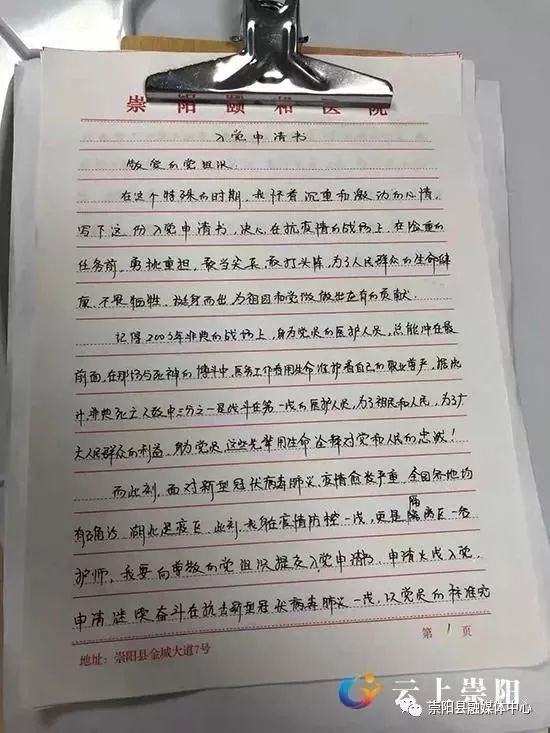 崇阳颐和医院
入党申请书
敬爱的党组织:
在这个特殊的时期,我怀着沉重和激动的心情,
写下这份入党申请书,决心在抗疫情的战场上,在险重的
任务前,勇挑重担,敢当尖兵,敢打头阵,为了人民群众的生命健
康,不畏牺牲,挺身而出,为祖国和党做出应有的贡献.
记得2003年非典的战场上,身为党员的医护人员,总能冲在最
前面,在那场与死神的搏斗中,医务工作者用生命维护着自己的职业尊严,据统
计,非典死亡人数中三分之一是战斗在第一线的医护人员,为了祖国和人民,为了广
大人民群众的利益,身为党员,这些先辈用生命诠释对党和人民的忠诚!
而此刻,面对新型冠状病毒肺炎,疫情愈发严重,全国各地均
有确诊,湖北是疫区,此刻,我身在疫情防控一线,更是隔离区一名
护师,我要向尊敬的党组织提交入党申请书,申请火线入党,
申请继续奋斗在抗击新型冠状病毒肺炎一线,以党员的标准完
第1页
地址:崇阳县金城大道7号
云上崇阳
崇阳县融媒体中心